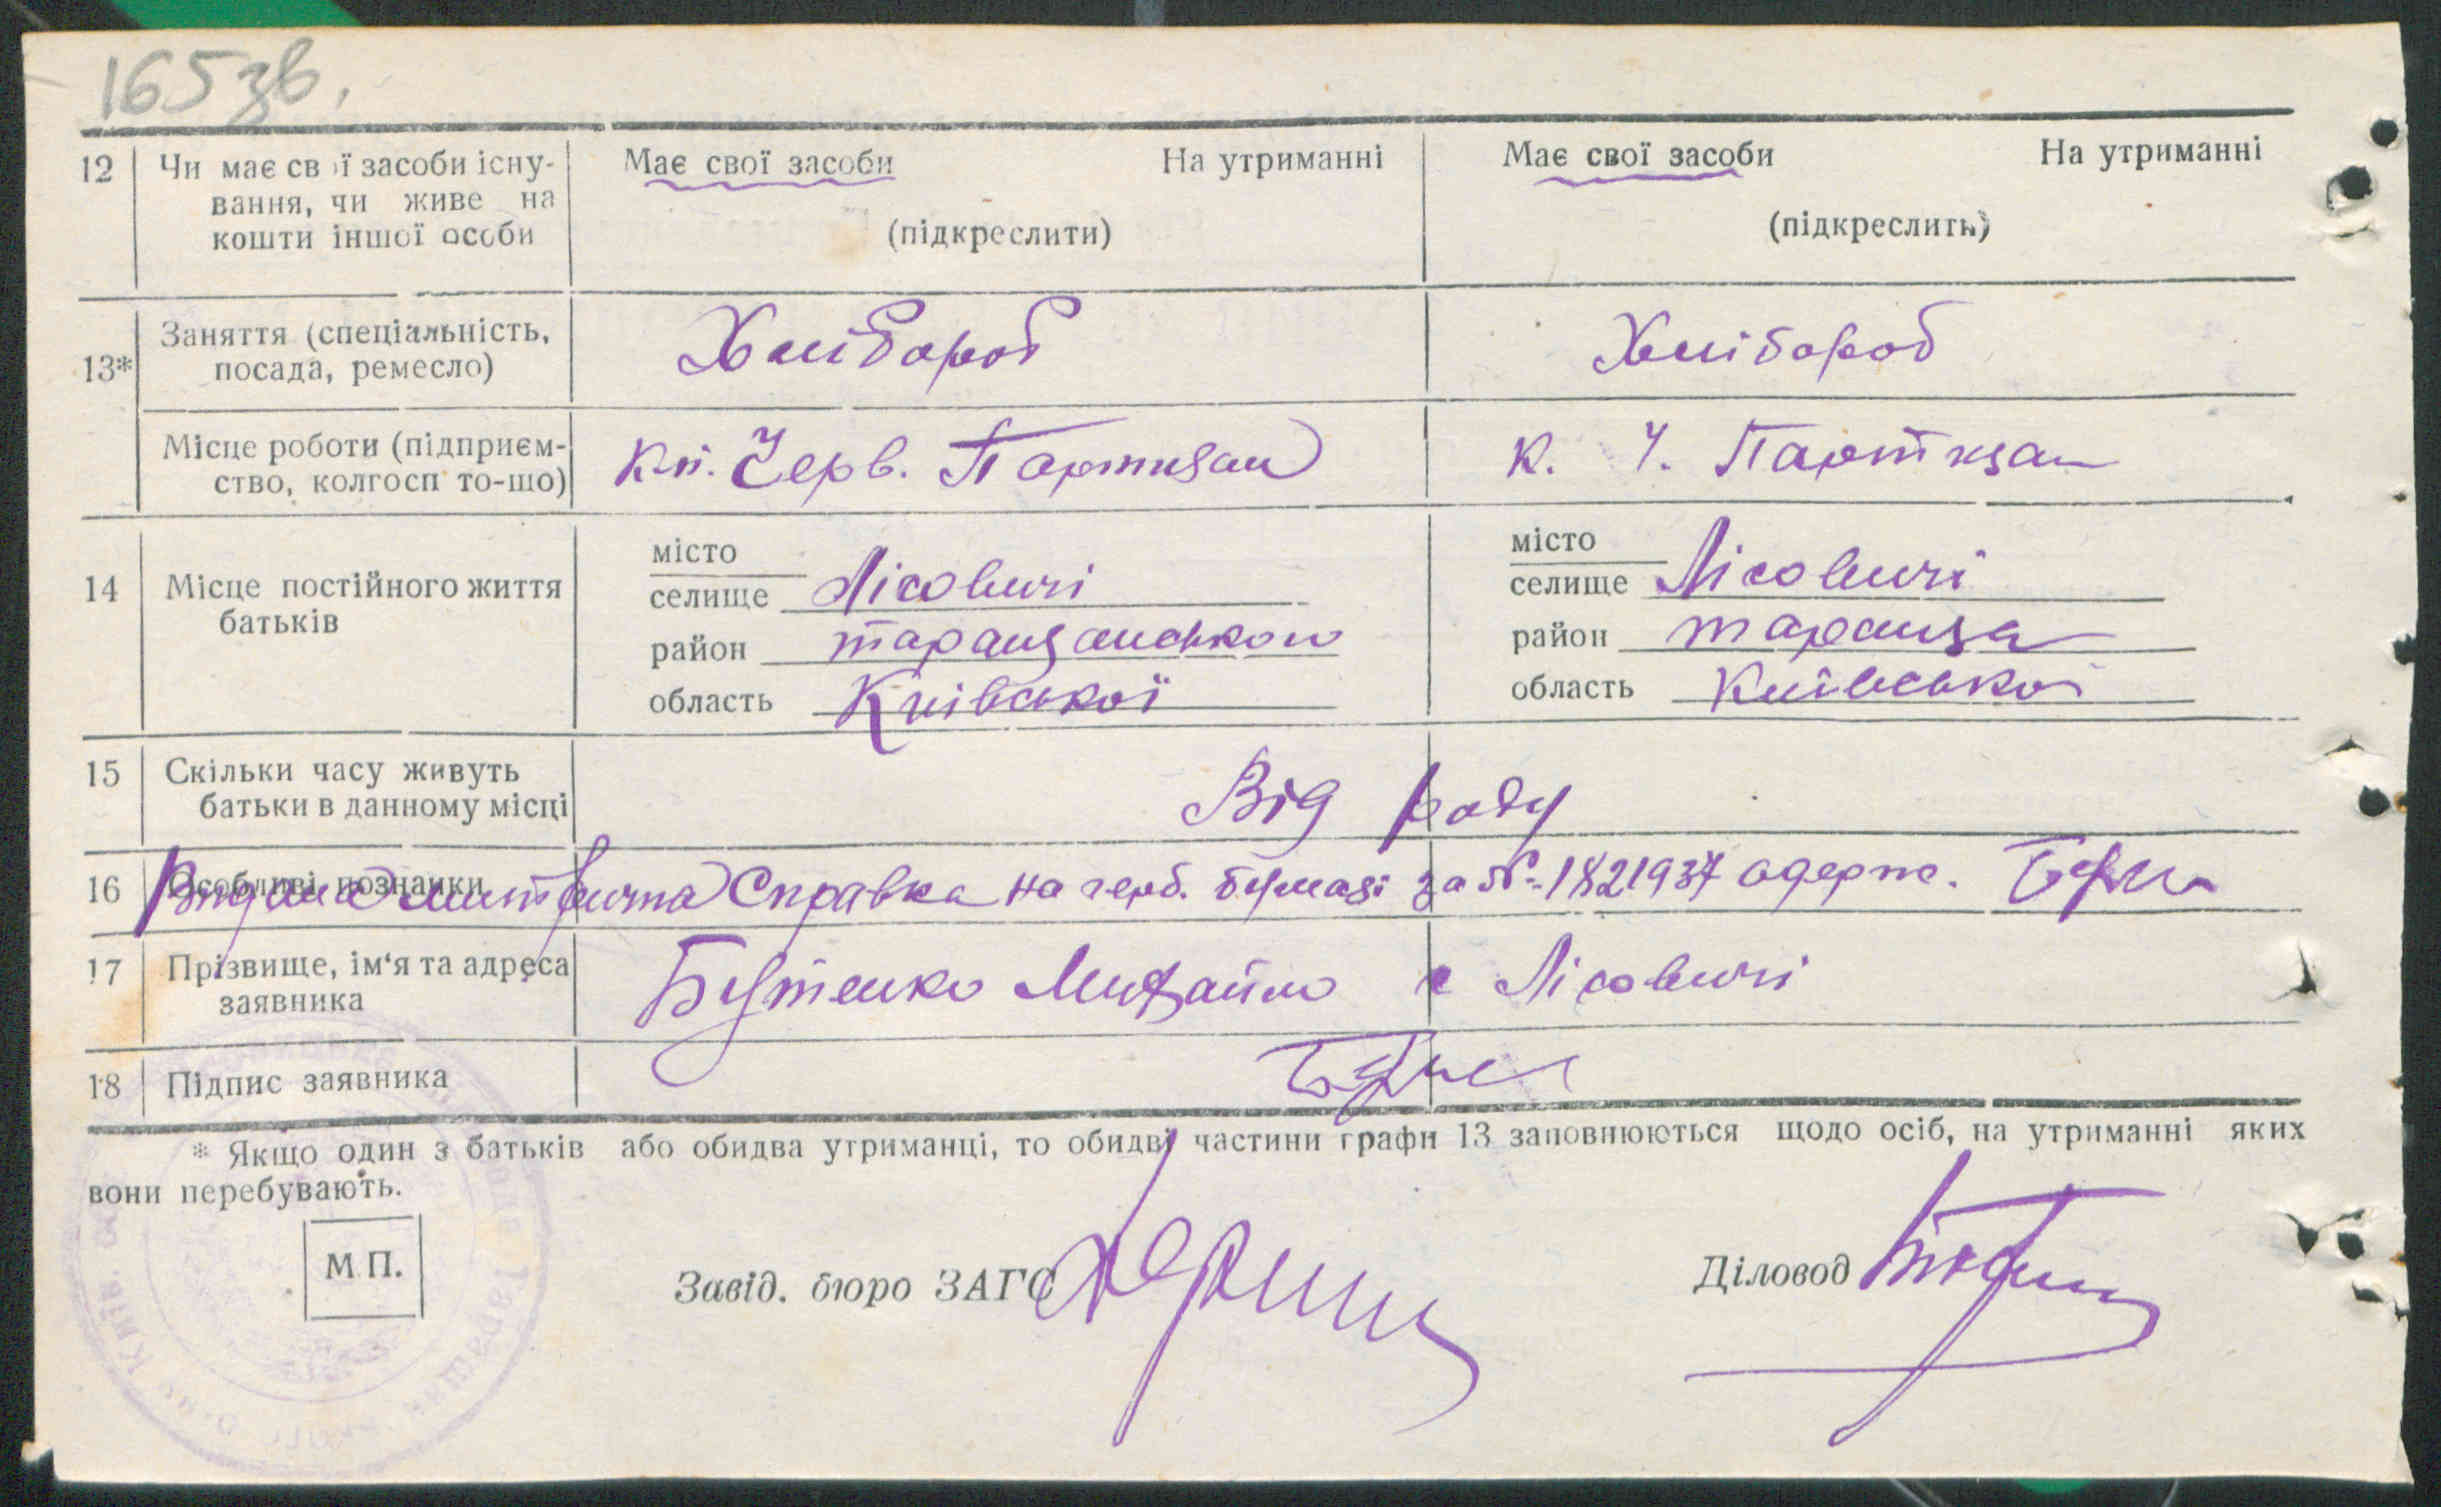 165 зв.
12 Чи має свої засоби існу- Має свої засоби На утриманні Має свої засоби На утриманні
вання, чи живе на
кошти іншої особи (підкреслити) (підкреслить)
13* Заняття (спеціальність, Хлібороб Хлібороб
посада, ремесло)
Місце роботи (підприєм- Кп. Черв. Партизан К. Ч. Партизан
ство, колгосп то-що)
14 Місце постійного життя місто місто
батьків селище Лісовичі селище Лісовичі
район таращанського район тараща
область Київської область Київської
15 Скільки часу живуть Від роду
батьки в данному місці
16 Особливі познаки Справка на герб. бумазі за № 1821937 одерж.
17 Прізвище, ім'я та адреса Бутенко Михайло с Лісовичі
заявника
18 Підпис заявника
* Якщо один з батьків або обидва утриманці, то обидві частини графи 13 заповнюються щодо осіб, на утриманні яких
вони перебувають.
М П.
Завід. бюро ЗАГС Діловод